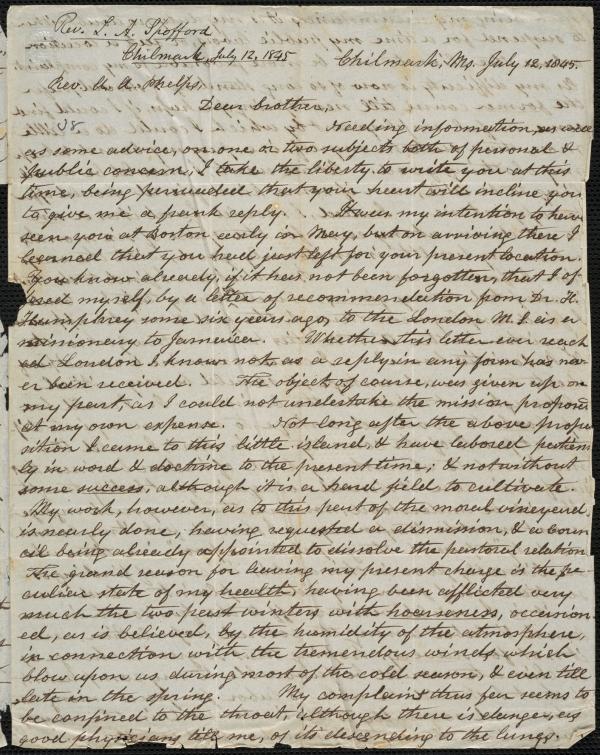 Rev. L. A. Spofford
Chilmark, July 12, 1845
Chilmark, Ms. July 12, 1845.
Rev. A. A. Phelps,
Dear brother,
Needing information, as well
as some advice, on one or two subjects both of personal &
public concern, I take the liberty to write you at this
time, being persuaded that your heart will incline you
to give me a frank reply. It was my intention to have
seen you at Boston early in May, but on arriving there I
learned that you had just left for your present location.
You know already, if it has not been forgotten, that I of
fered myself, by a letter of recommendation from Dr. H.
Humphrey some six years ago, to the London M. S. as a
missionary to Jamaica. Whether this letter ever reach
ed London I know not, as a reply in any form has nev
er been received. The object of course, was given up on
my part, as I could not undertake the mission proposed
at my own expense. Not long after the above propo
sition I came to this little island, & have labored patient
ly in word & doctrine to the present time; & not without
some success, although it is a hard field to cultivate.
My work, however, as to this part of the moral vineyard
is nearly done, having requested a dismission, & a coun
cil being already appointed to dissolve the pastoral relation.
The grand reason for leaving my present charge is the pe
culiar state of my health, having been afflicted very
much the two past winters with hoarseness, occasion
ed, as is believed, by the humidity of the atmosphere,
in connection with the tremendous winds which
blow upon us during most of the cold season, & even till
late in the spring. My complaint thus far seems to
be confined to the throat, although there is danger, as
good physicians tell me, of its descending to the lungs.